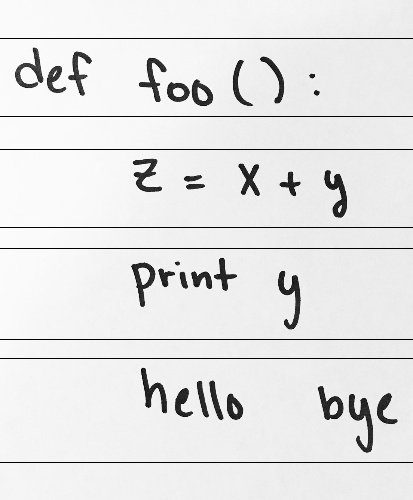 def foo():
    z = x + y
    print y
    hello bye